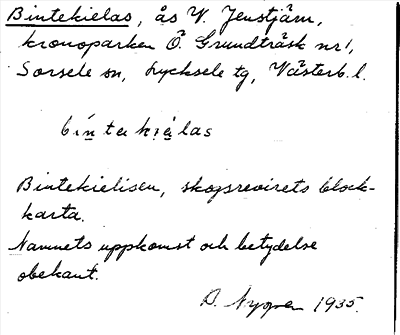 Bintekielas, ås V. Jenstjärn,
kronoparken Ö. Grundträsk nr 1,
Sorsele sn, Lycksele tg, Västerb. l.
bíntekiẹlas
Bintekielisen, skogsrevirets block-
karta.
Namnets uppkomst och betydelse
obekant.
1935.